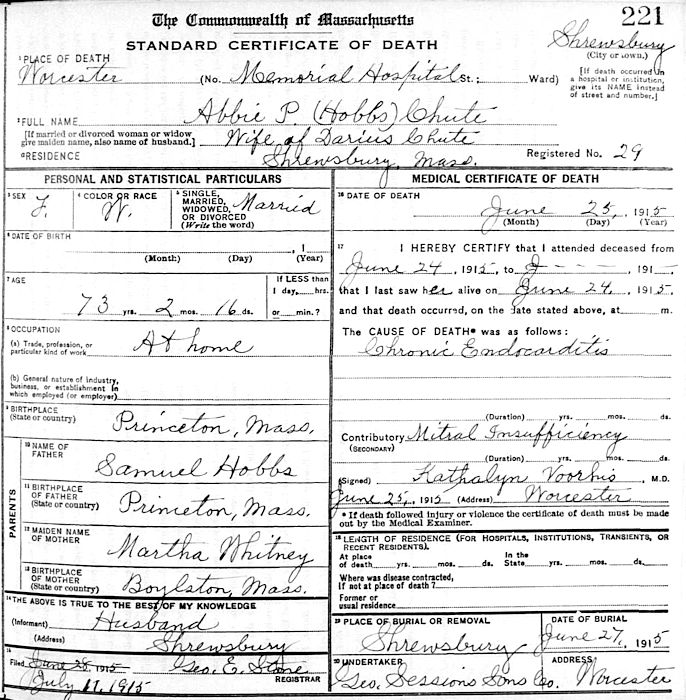 The Commonwealth of Massachusetts 221
STANDARD CERTIFICATE OF DEATH
Shrewsbury
(City or town,)
1 PLACE OF DEATH
Worcester (No. Memorial Hospital St.; Ward)
[If death occurred in a hospital or institution, give its NAME instead of street and number.]
2 FULL NAME Abbie P. (Hobbs) Chute
[If married or divorced woman or widow give maiden name, also name of husband.] Wife of Darius Chute
RESIDENCE Shrewsbury, Mass. Registered No. 29
PERSONAL AND STATISTICAL PARTICULARS
3 SEX F.
4 COLOR OR RACE W.
5 SINGLE, MARRIED, WIDOWED, OR DIVORCED (Write the word) Married
6 DATE OF BIRTH
(Month) (Day) , 1 (Year)
7 AGE
73 yrs. 2 mos. 16 ds.
If LESS than 1 day, hrs. or min.?
8 OCCUPATION
(a) Trade, profession, or particular kind of work At home
(b) General nature of industry, business, or establishment in which employed (or employer)
9 BIRTHPLACE (State or country) Princeton, Mass.
PARENTS
10 NAME OF FATHER Samuel Hobbs
11 BIRTHPLACE OF FATHER (State or country) Princeton, Mass.
12 MAIDEN NAME OF MOTHER Martha Whitney
13 BIRTHPLACE OF MOTHER (State or country) Boylston, Mass.
14 THE ABOVE IS TRUE TO THE BEST OF MY KNOWLEDGE
(Informant) Husband
(Address) Shrewsbury
15
Filed June 28, 1915 Geo. E. Stone
REGISTRAR
July 11, 1915
MEDICAL CERTIFICATE OF DEATH
16 DATE OF DEATH
June 25, 1915
(Month) (Day) (Year)
17 I HEREBY CERTIFY that I attended deceased from
June 24, 1915, to J - - - - , 191 -,
that I last saw her alive on June 24, 1915,
and that death occurred, on the date stated above, at m.
The CAUSE OF DEATH* was as follows:
Chronic Endocarditis
(Duration) yrs. mos. ds.
Contributory (SECONDARY) Mitral Insufficiency
(Duration) yrs. mos. ds.
(Signed) Kathalyn Voorhis M.D.
June 25, 1915 (Address) Worcester
* If death followed injury or violence the certificate of death must be made out by the Medical Examiner.
18 LENGTH OF RESIDENCE (FOR HOSPITALS, INSTITUTIONS, TRANSIENTS, OR RECENT RESIDENTS).
At place of death yrs. mos. ds. In the State yrs. mos. ds.
Where was disease contracted, if not at place of death?
Former or usual residence
19 PLACE OF BURIAL OR REMOVAL
Shrewsbury
DATE OF BURIAL
June 27, 1915
20 UNDERTAKER
Geo. Sessions Sons Co.
ADDRESS
Worcester